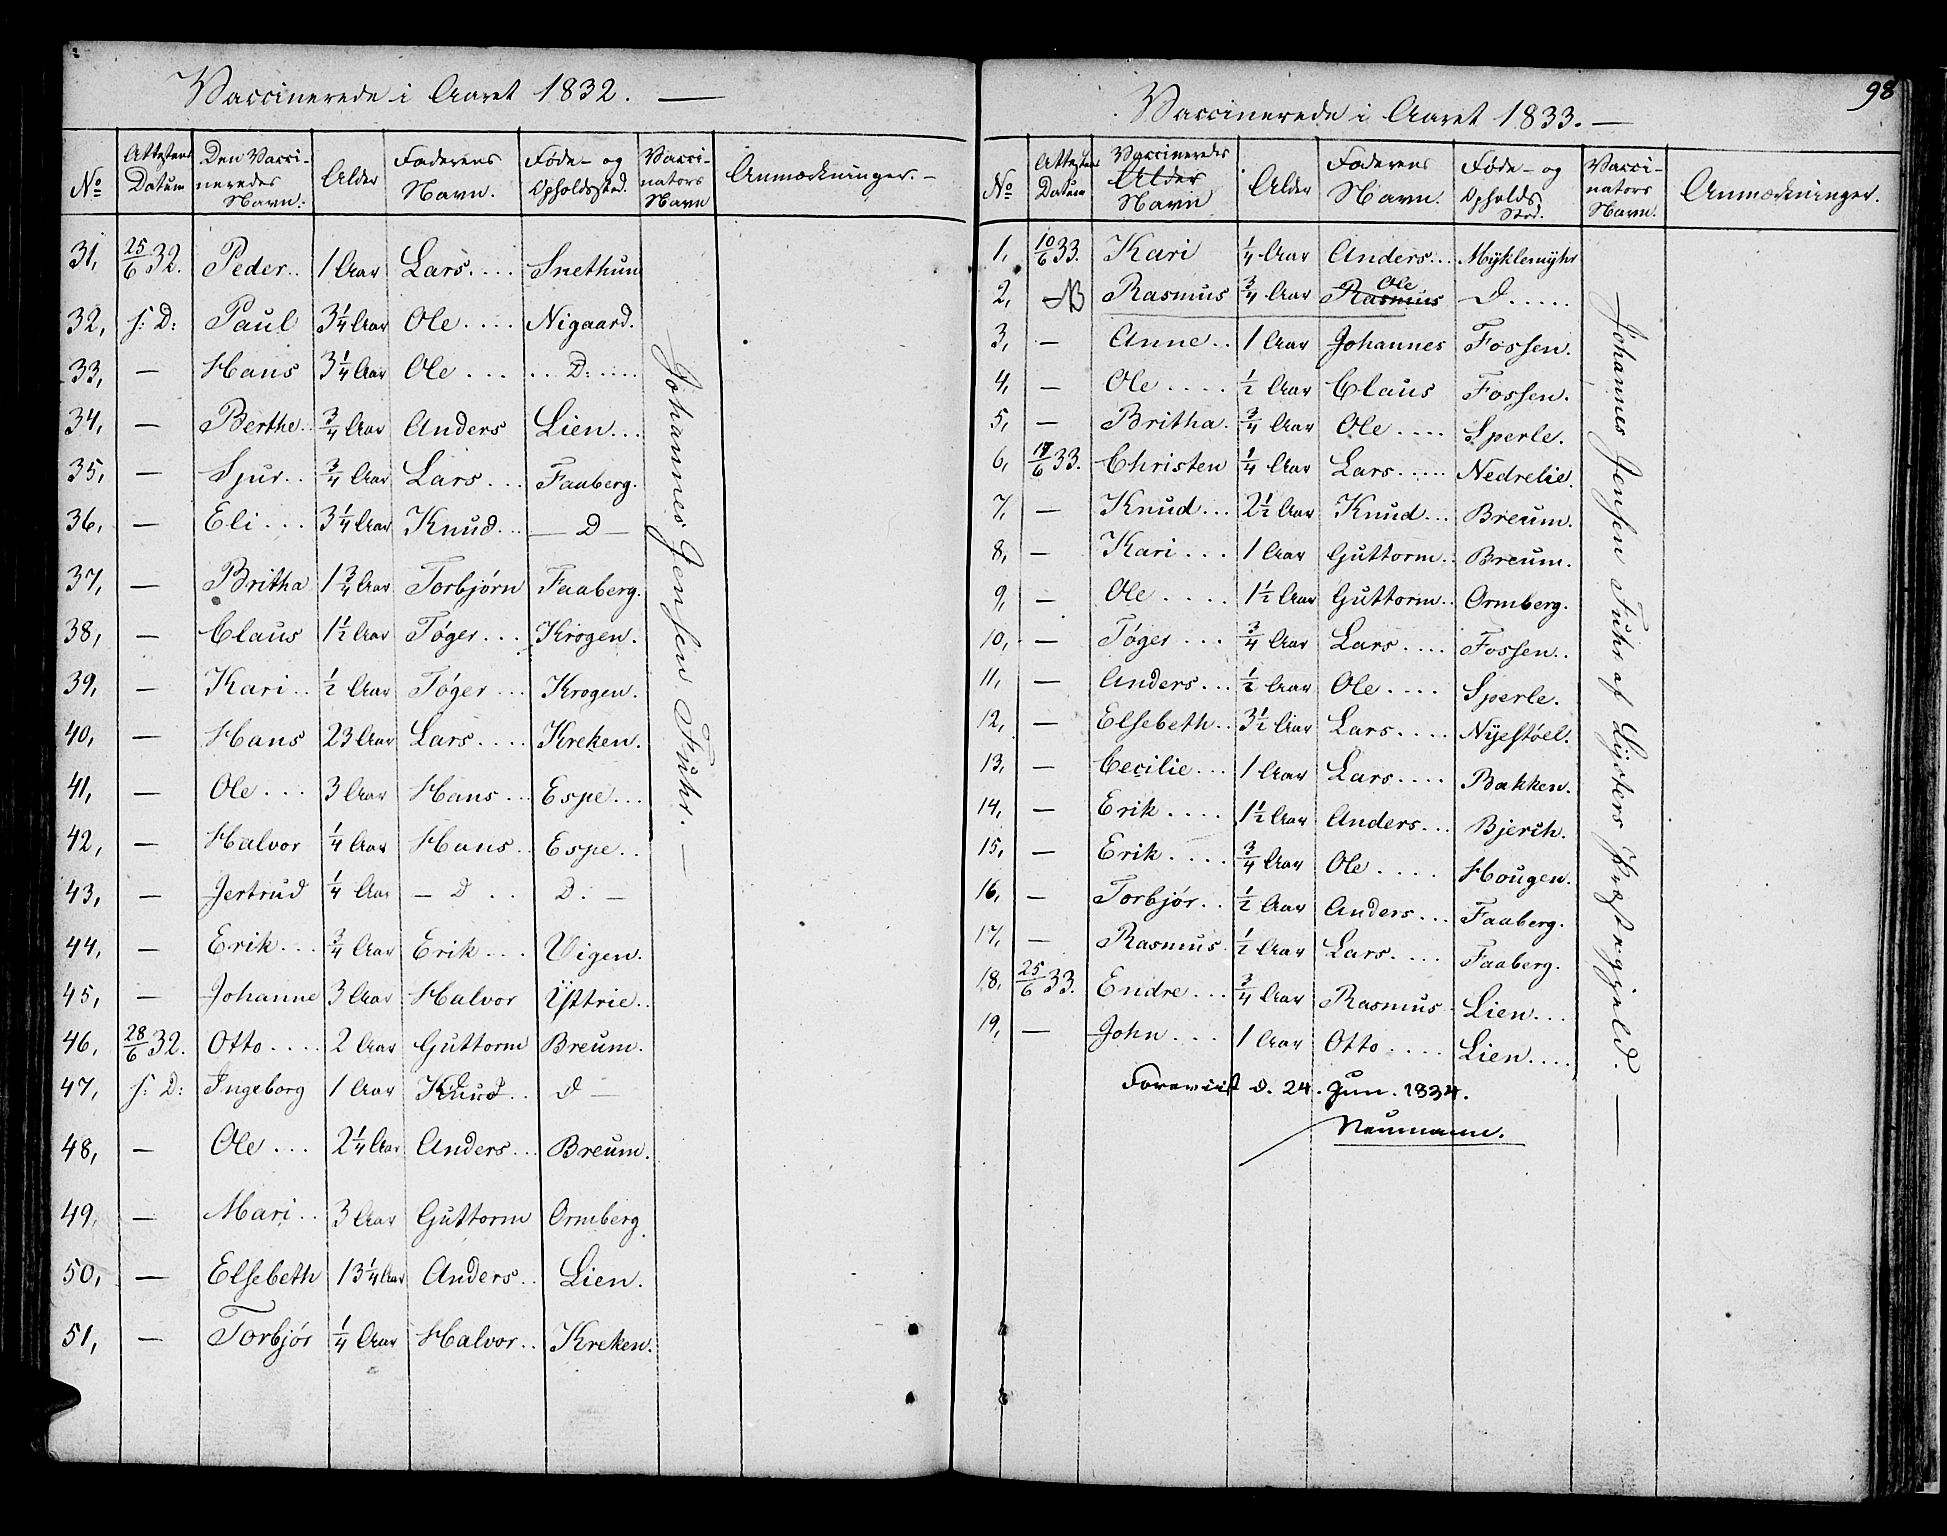 Vaccinerede i Aaret 1832. —
No | Attestens Datum | Den Vaccineredes Navn: | Alder | Faderens Navn. | Føde- og Opholdssted. | Vaccinators Navn | Anmærkninger. —
31, 25/6 32. Peder.. 1 Aar Lars.... Snethun
32, s: D: Paul 3 1/4 Aar Ole.... Nigaard.
33, — Hans 3 1/4 Aar Ole.... .. D: ....
34, — Berthe.. 3/4 Aar Anders Lien...
35, — Sjur.. 3/4 Aar Lars... Faaberg.
36, — Eli... 3 1/4 Aar Knud... — D —
37, — Britha 1 3/4 Aar Torbjørn Faaberg.
38, — Claus 1 1/2 Aar Tøger... Krogen.
39, — Kari.. 1/2 Aar Tøger... Krogen.
40, — Hans 23 Aar Lars.... Kreken.
41, — Ole... 3 Aar Hans... Espe...
42, — Halvor 1/4 Aar Hans.. Espe..
43, — Jertrud 1/4 Aar — D .. D. —
44, — Erik... 3/4 Aar Erik... Vigen.
45, — Johanne 3 Aar Halvor Ÿttrie..
46, 28/6 32. Otto.... 2 Aar Guttorm Breum.
47, s: D: Ingeborg 1 Aar Knud.. D —
48, — Ole... 2 1/4 Aar Anders... Breum.
49, — Mari.. 3 Aar Guttorm Ormberg.
50, — Elsebeth 13 1/4 Aar Anders.. Lien.
51, — Torbjør 1/4 Aar Halvor.. Kreken.
Johannes Jensen Fuhr. —
98
Vaccinerede i Aaret 1833. —
No | Attestens Datum | Vaccineredes Alder Navn | Alder | Faderens Navn. | Føde- og Opholds Sted. | Vaccinators Navn. | Anmærkninger.
1, 10/6 33. Kari 1/4 Aar Anders... Myklemyhr
2, — NB Rasmus 3/4 Aar Rasmus Ole D.....
3, — Anne.. 1 Aar Johannes Fossen.
4, — Ole.... 1/2 Aar Claus Fossen.
5, — Britha. 3/4 Aar Ole.... Sperle.
6, 17/6 33. Christen 1/4 Aar Lars..... Nedrelie.
7, — Knud... 2 1/2 Aar Knud... Breum.
8, — Kari... 1 Aar Guttorm.. Breum.
9, — Ole.... 1 1/2 Aar Guttorm.. Ormberg.
10, — Tøger... 3/4 Aar Lars.... Fossen..
11, — Anders... 1/2 Aar Ole.... Sperle.
12, — Elsebeth.. 3 1/2 Aar Lars.... Nyestøel.
13, — Cecilie... 1 Aar Lars.... Bakken.
14, — Erik.... 1 1/2 Aar Anders... Bjerch.
15, — Erik.... 3/4 Aar Ole.... Hougen.
16, — Torbjør.. 1/2 Aar Anders... Faaberg.
17, — Rasmus. 1/2 Aar Lars.... Faaberg.
18, 25/6 33. Endre... 3/4 Aar Rasmus Lien...
19, — John... 1 Aar Otto.... Lien....
Johannes Jensen Fuhr af Lysters Præstegjeld. —
Foreviist d. 24. Jun. 1834.
Neumann.